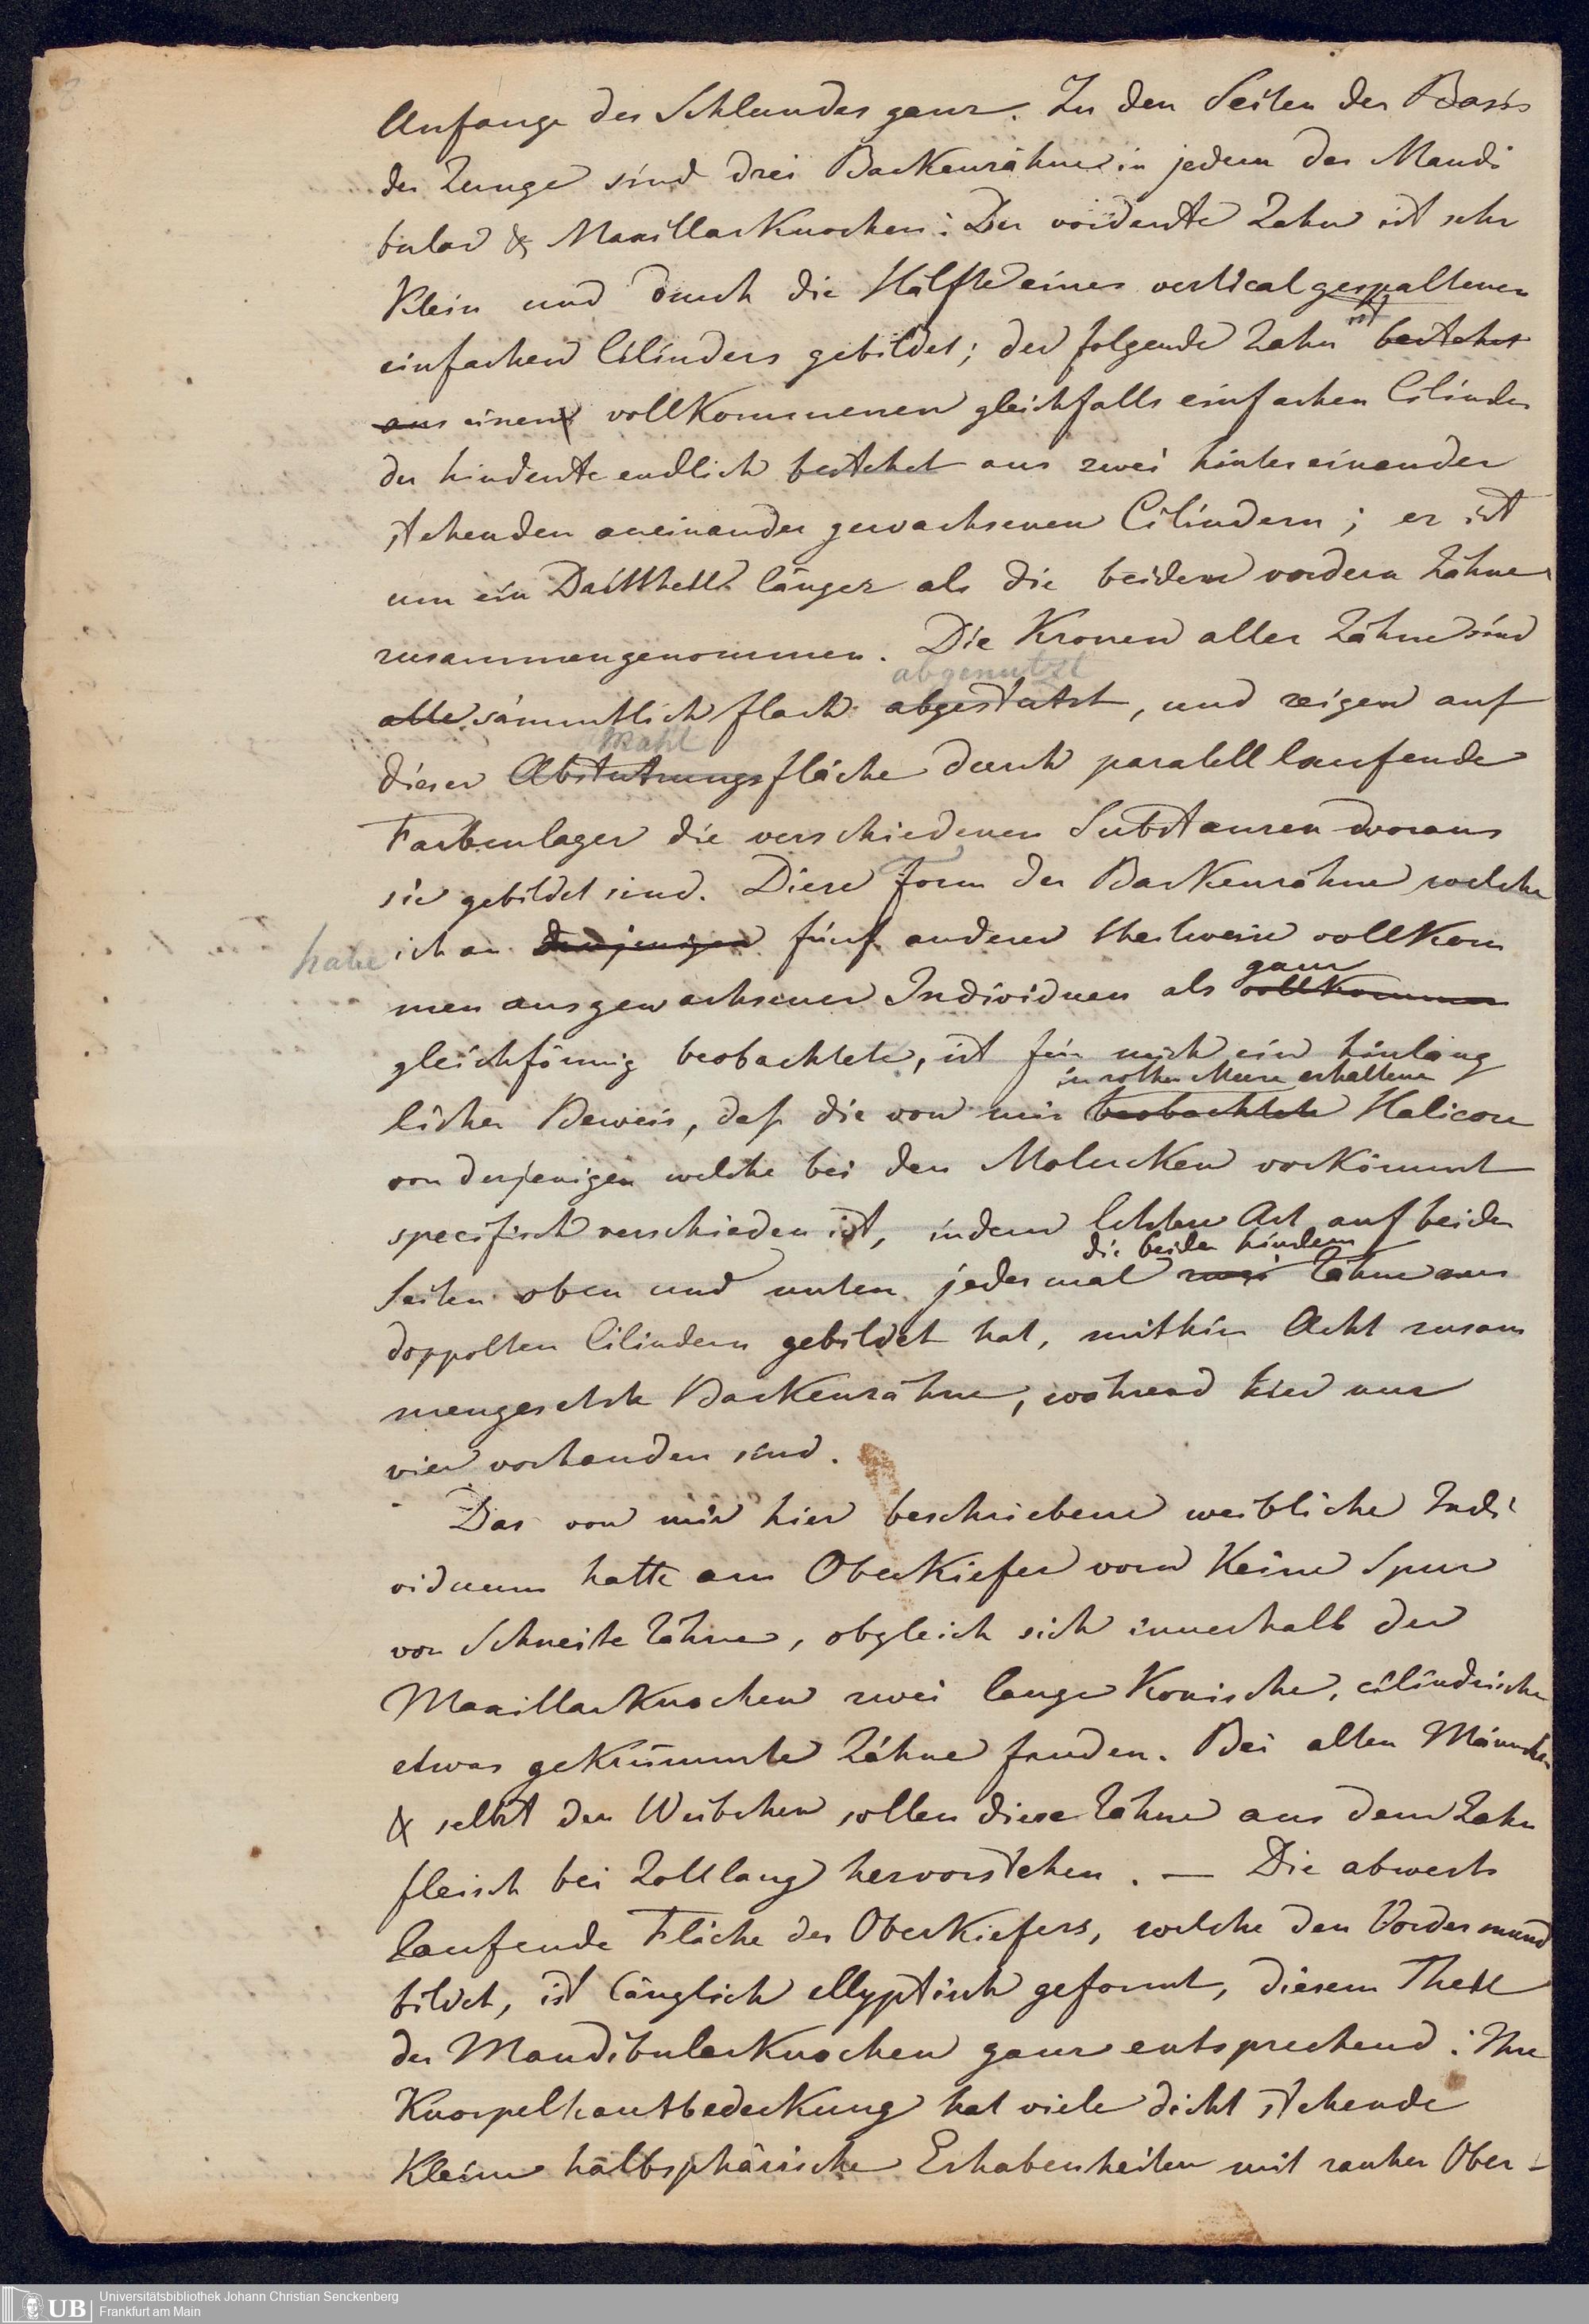 Anfange des Schlundes ganz. Zu den Seiten der Basis
der Zunge sind drei Backenzähne in jedem der Mandi
bular & Maxillar Knochen: Der vorderste Zahn ist sehr
Klein und durch die Hälfte eines vertical gespaltenen
einfachen Cilinders gebildet; der folgende Zahn ist bestehet
aus einem vollKommenen gleichfalls einfachen Cilinder
der hinderste endlich bestehet aus zwei hintereinander
stehenden aneinander gewachsenen Cilindern; er ist
um ein Dritttheil länger als die beiden vordern Zähne
zusammengenommen. Die Kronen aller Zähne sind
abgenutzt
alle sämmtlich flach abgestutzt, und zeigen auf
Mahl
dieser Abstutzungsfläche durch paralell laufende
Farbenlager die verschiedenen Substanzen woraus
sie gebildet sind. Diese Form der BacKenzähne welche
habe ich an denjenigen fünf anderen theilweise vollKom
men ausgewachsener Individuen als ganz vollkommen
gleichförmig beobachtete, ist für mich ein hinläng
in rothen Meere erhaltene
licher Beweis, daß die von mir beobachtete Halicore
von derjenigen welche bei den MoluckKen vorKömmt
specifisch verschieden ist, indem letztere Art auf beiden
die beiden hindern
Seiten oben und unten jedesmal zwei Zähne aus
doppolten Cilindern gebildet hat, mithin Acht zusam
mengesetzte BacKenzähne, während hier nur
vier vorhanden sind.
Das von mir hier beschriebene weibliche Indi
viduum hatte am OberKiefer vorn Keine Spur
von Schneide Zähne, obgleich sich innerhalb der
MaxillarKnochen zwei lange Konische, cilindrische
etwas geKrümmte Zähne fanden. Bei alten Männchen
& selbst den Weibchen sollen diese Zähne aus dem Zahn
fleisch bei Zolllang hervorstehen. — Die abwerts
laufende Fläche des OberKiefers, welche den Vordermund
bildet, ist länglich ellyptisch geformt, diesem Theil
der MandibularKnochen ganz entsprechend: Ihre
Knorpelhautbedeckung hat viele dicht stehende
Kleine halbsphärische Erhabenheiten mit rauher Ober-
Universitätsbibliothek Johann Christian Senckenberg
Frankfurt am Main
UB